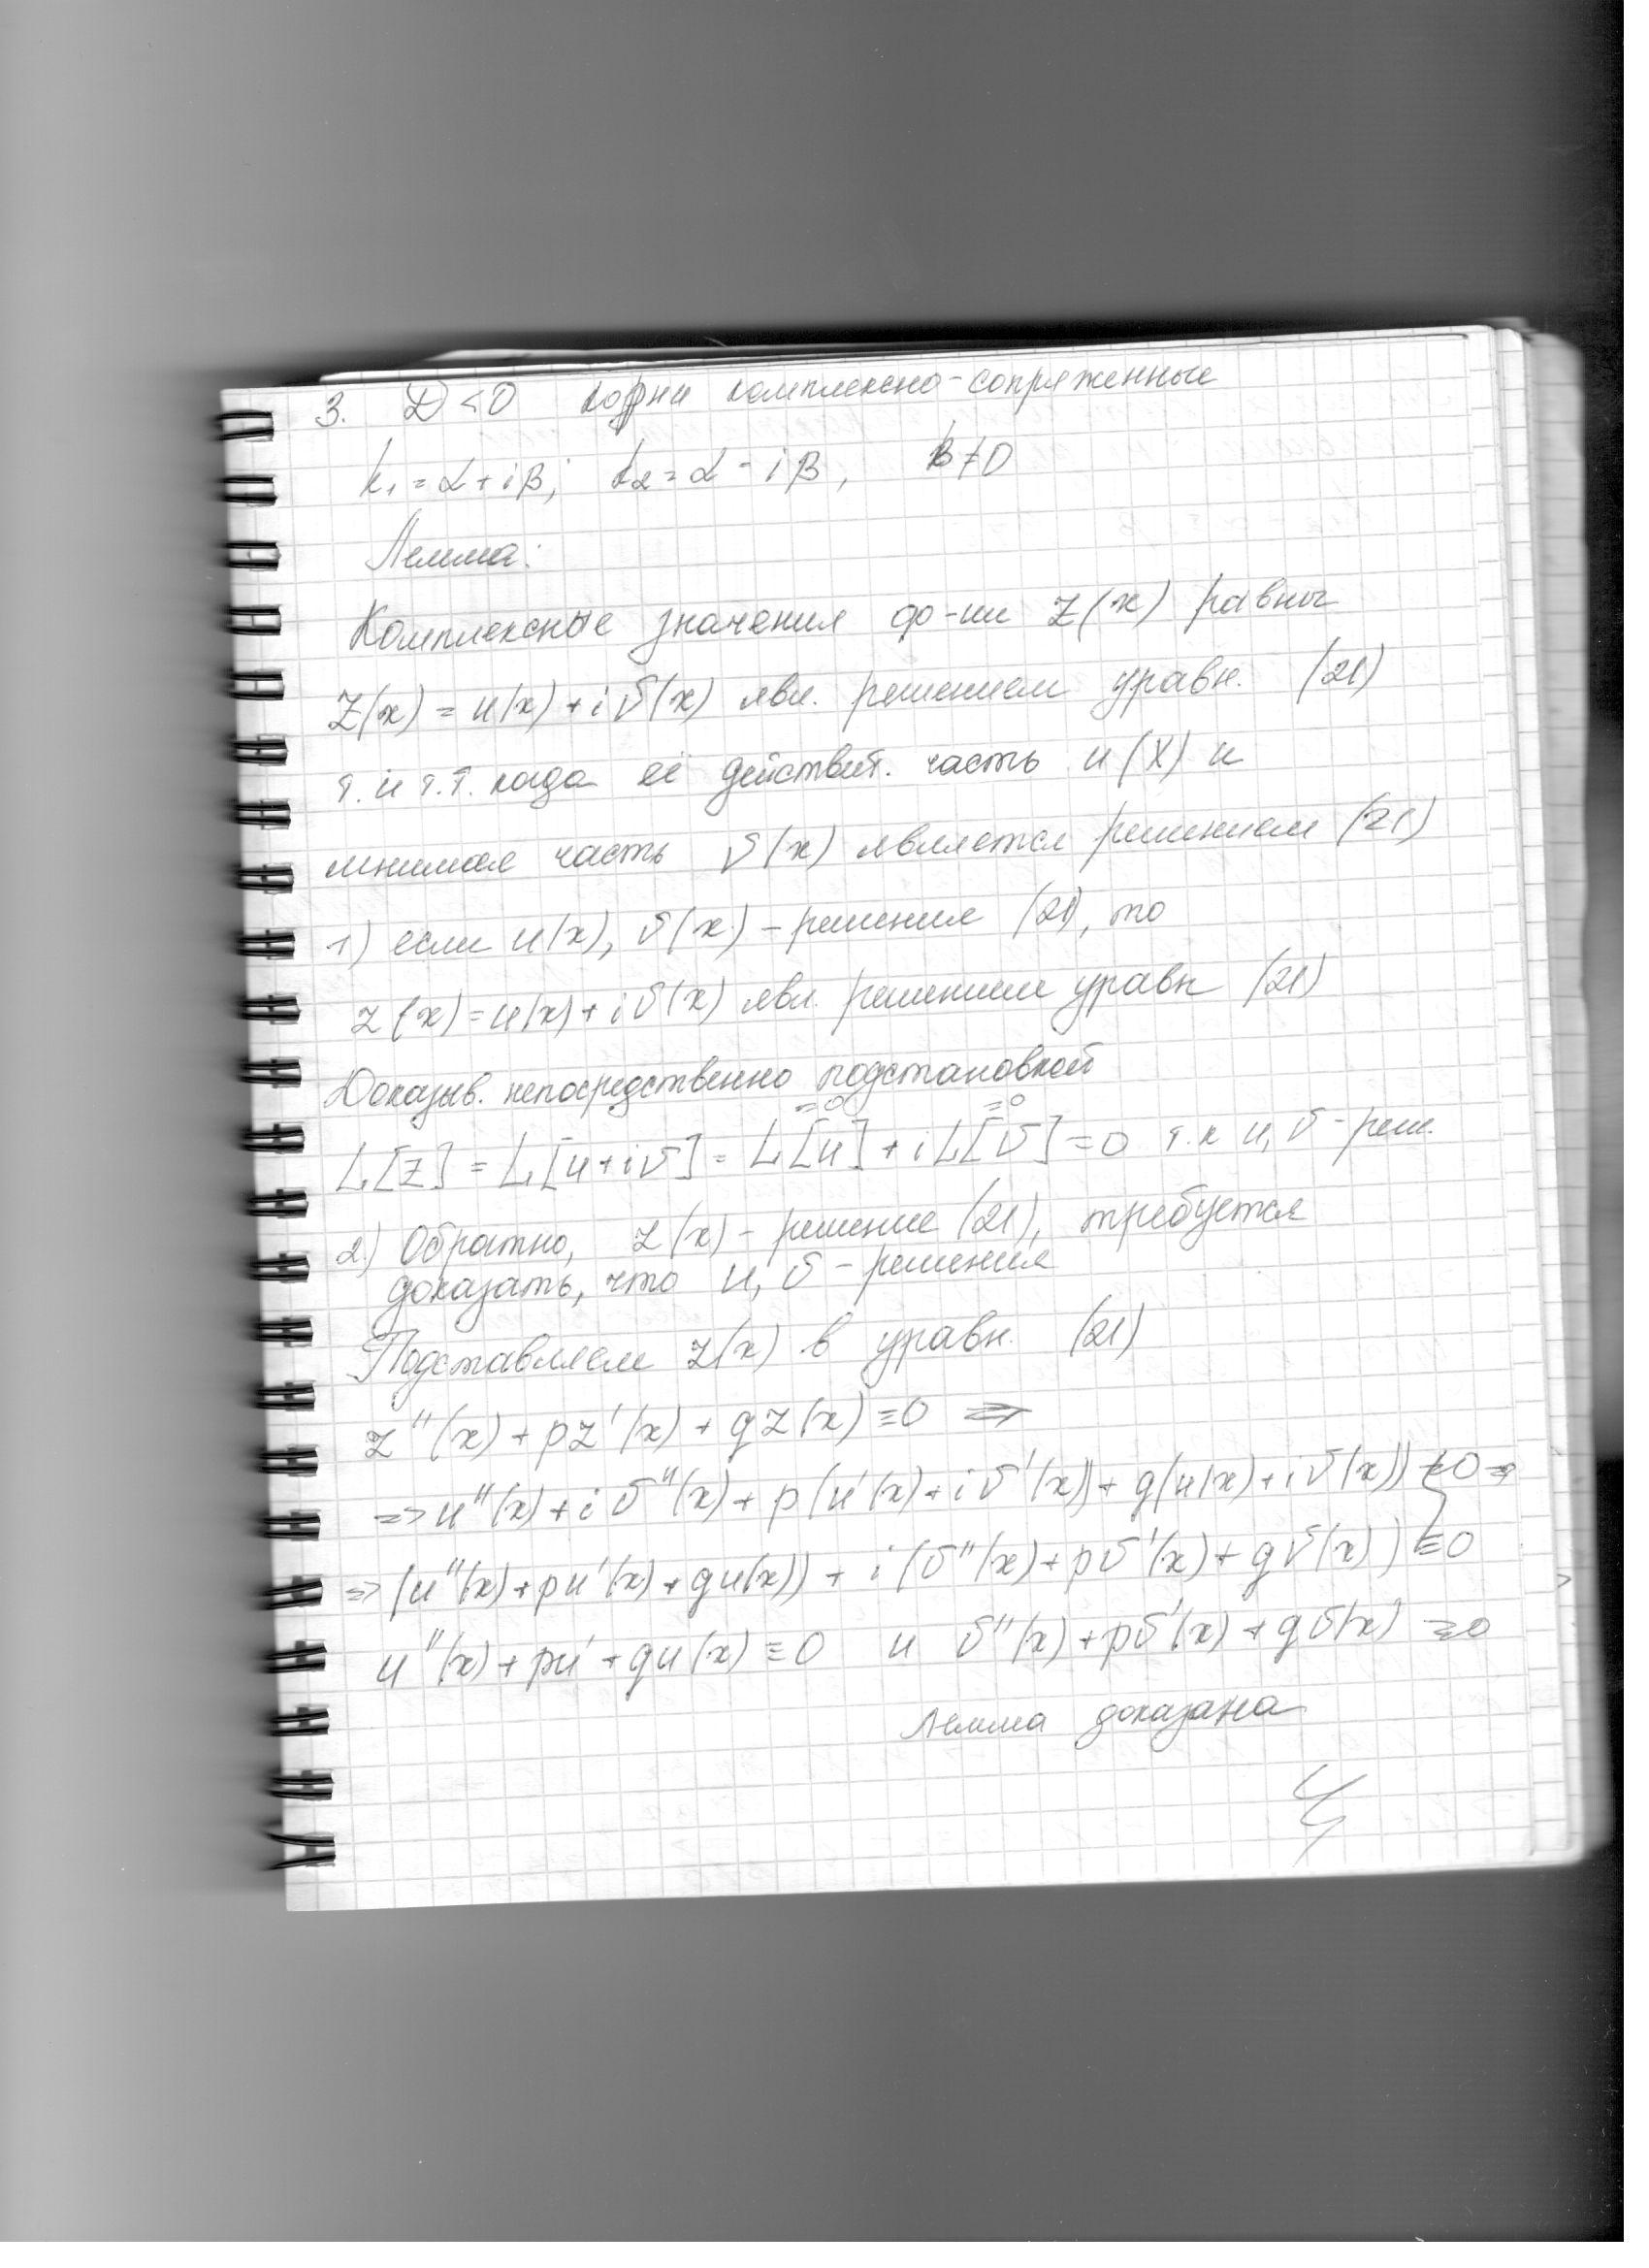 3. D < 0 корни комплексно-сопряженные
k₁ = α + iβ; k₂ = α - iβ, β ≠ 0
Лемма:
Комплексные значения ф-ии z(x) равны
z(x) = u(x) + iv(x) явл. решением уравн. (21)
т. и т.т. когда её действит. часть u(x) и
мнимая часть v(x) является решением (21)
1) если u(x), v(x) - решения (21), то
z(x) = u(x) + iv(x) явл. решением уравн (21)
Доказыв. непосредственно подстановкой
=0 =0
L[z] = L[u+iv] = L[u] + iL[v] = 0 т.к u, v - реш.
2) Обратно, z(x) - решение (21), требуется
доказать, что u, v - решения
Подставляем z(x) в уравн. (21)
z''(x) + pz'(x) + qz(x) ≡ 0 ⇒
⇒ u''(x) + iv''(x) + p(u'(x) + iv'(x)) + q(u(x) + iv(x)) ≡ 0 ⇒
⇒ (u''(x) + pu'(x) + qu(x)) + i(v''(x) + pv'(x) + qv(x)) ≡ 0
u''(x) + pu' + qu(x) ≡ 0 и v''(x) + pv'(x) + qv(x) ≡ 0
Лемма доказана